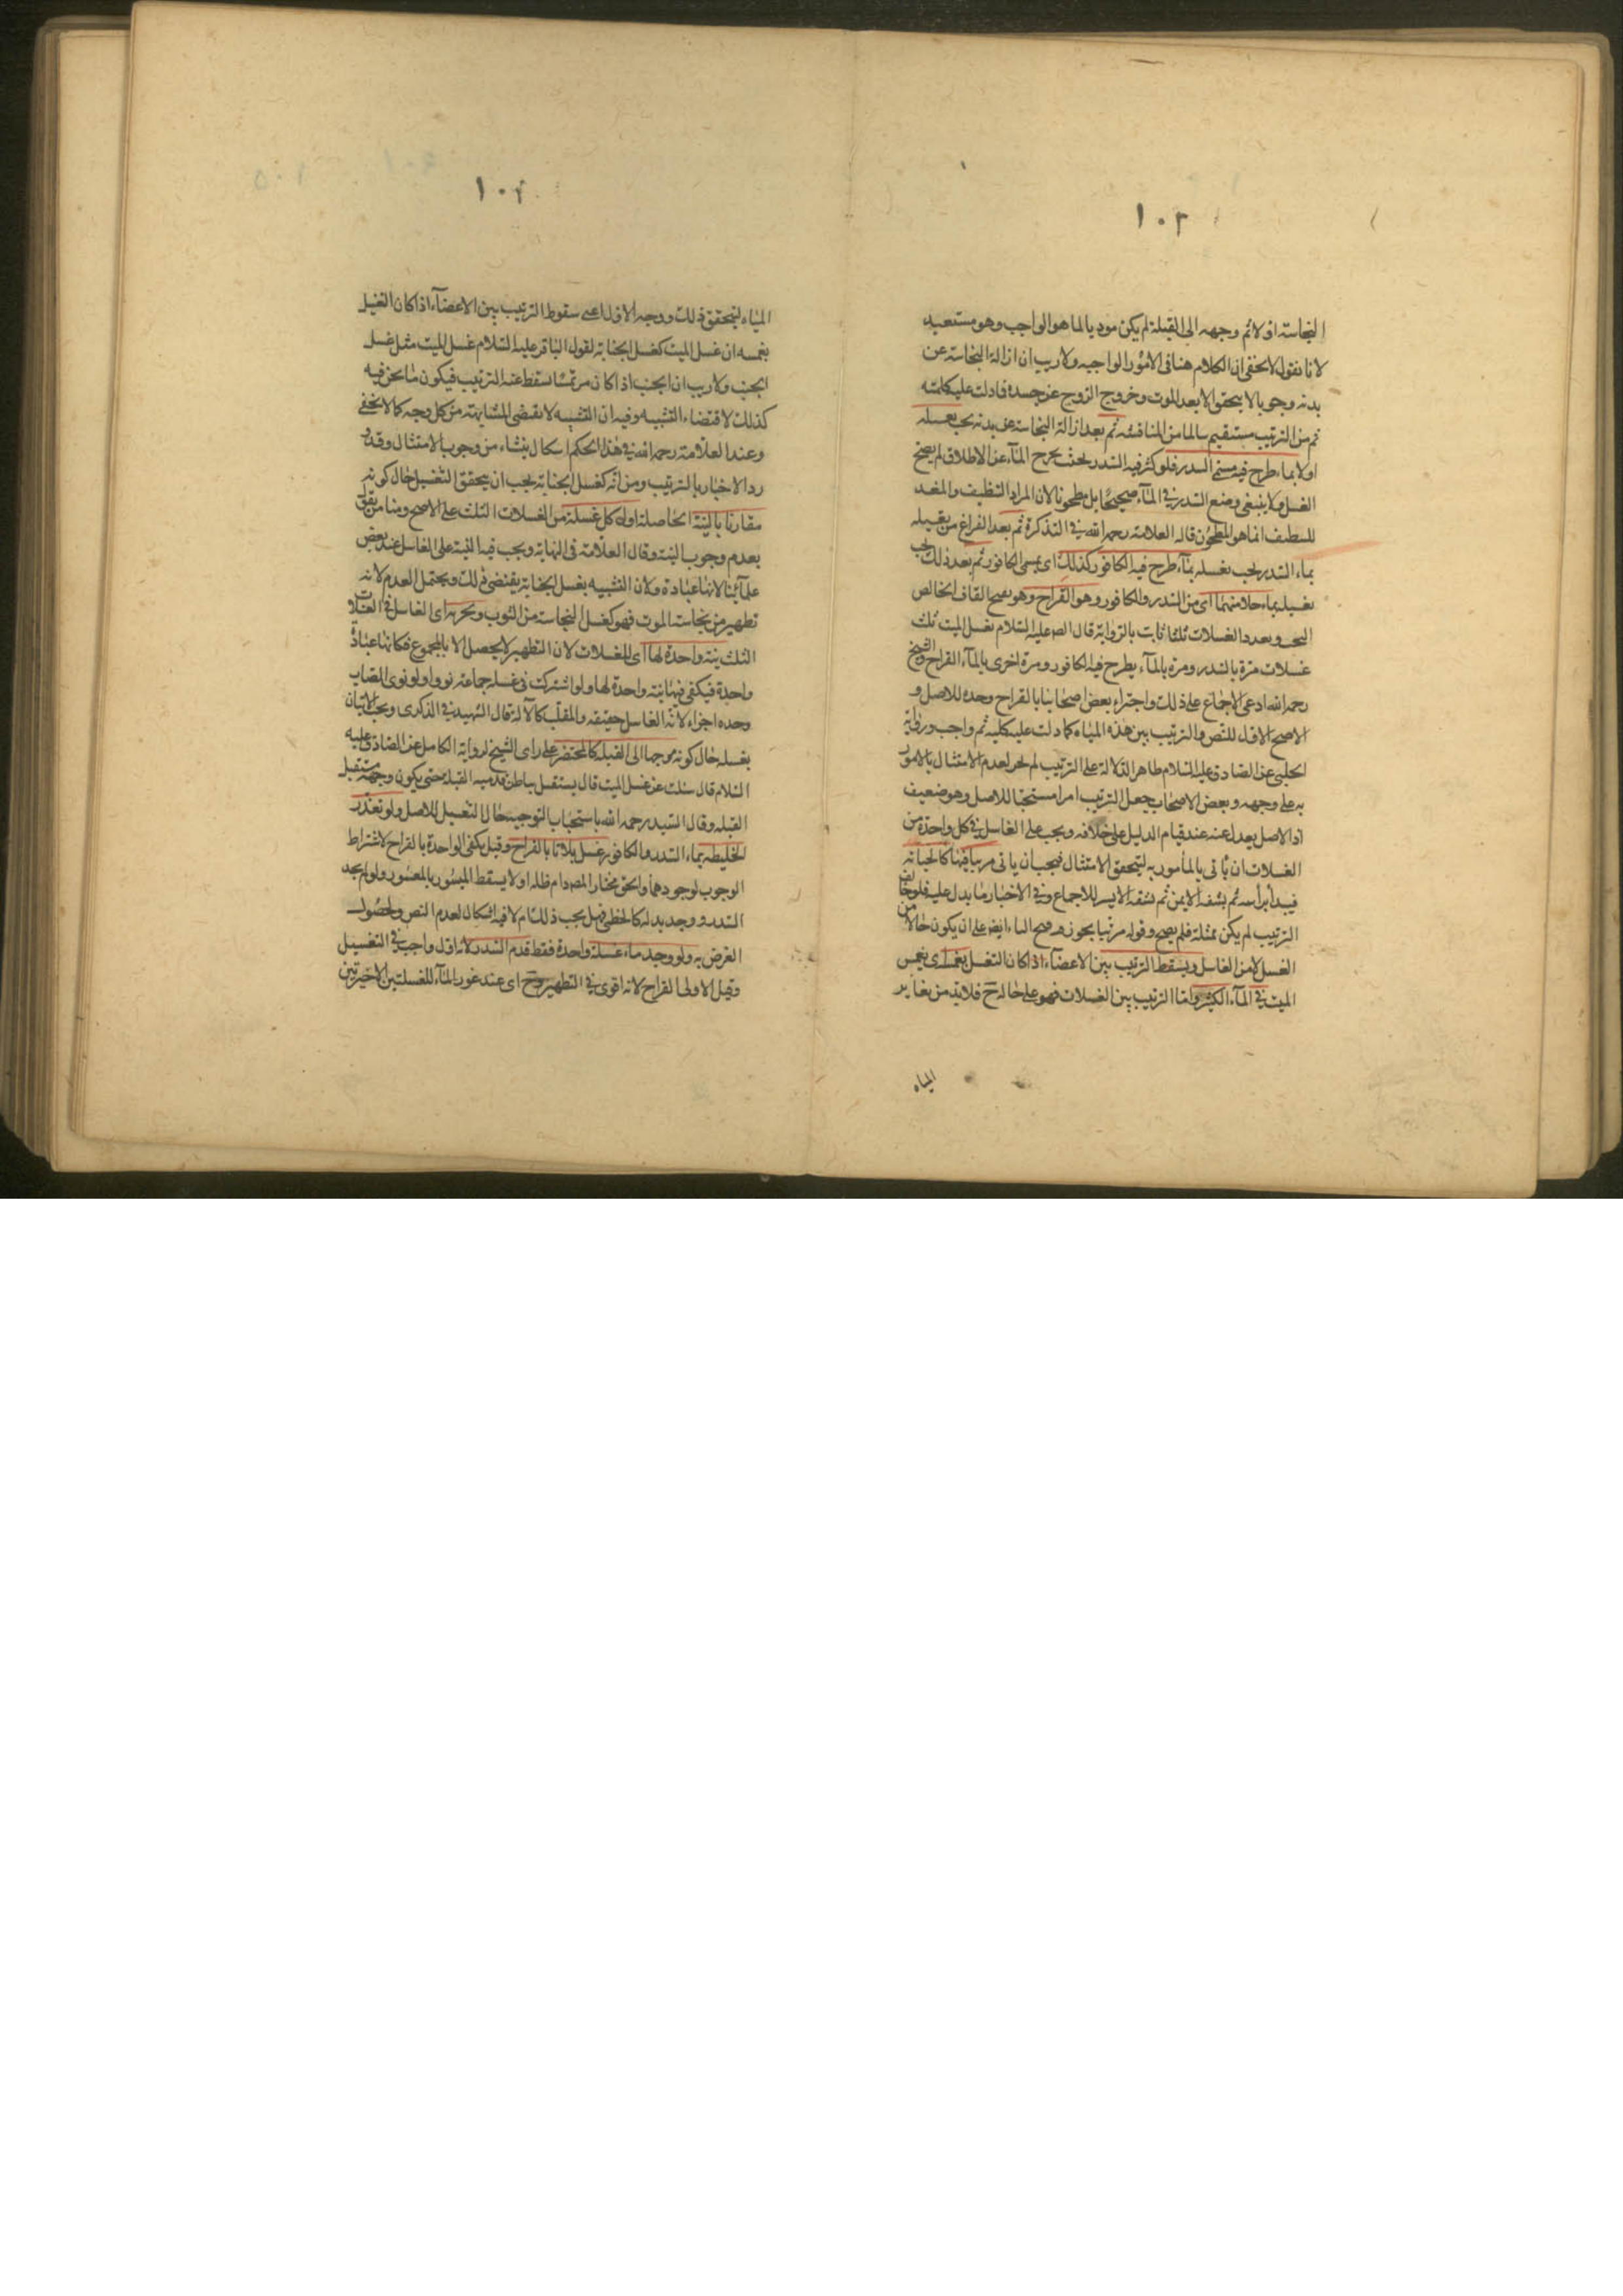 ١٠٣
النجاسة اولا ثم وجهه الى القبلة لم يكن موديا لما هو الواجب وهو مستبعد
لانا نقول لا يخفى ان الكلام هنا فى الامور الواجبه ولا ريب ان ازالة النجاسة عن
بدنه وجوبا لا يتحقق الا بعد الموت وخروج الروح عن جسده فما دلت عليه كلمة
ثم من الترتيب مستقيم سالما من المناقشه ثم بعد ازالة النجاسة عن بدنه يجب تغسيله
اولا بماء طرح فيه مسمى السدر فلو كثر فيه السدر بحيث يخرج الماء عن الاطلاق لم يصح
الغسل ولا ينبغى وضع السدر فى الماء صحيحا بل مطحونا لان المراد التنظيف والمعد
للتنظيف انما هو المطحون قاله العلامة رحمه الله فى التذكرة ثم بعد الفراغ من تغسيله
بماء السدر يجب تغسيله بماء طرح فيه الكافور كذلك اى مسمى الكافور ثم بعد ذلك يجب
تغسيله بماء خلا منهما اى من السدر والكافور وهو القراح وهو بفتح القاف الخالص
البحت وتعدد الغسلات ثلثا ثابت بالرواية قال الص عليه السلام تغسل الميت ثلث
غسلات مرة بالسدر ومرة بالماء يطرح فيه الكافور ومرة اخرى بالماء القراح والشيخ
رحمه الله ادعى الاجماع على ذلك واجتزاء بعض اصحابنا بالقراح وحده للاصل و
الاصح الاول للنص والترتيب بين هذه المياه كما دلت عليه كلمة ثم واجب ورواية
الحلبى عن الصادق عليه السلام ظاهر الدلالة على الترتيب لم يجز لعدم الامتثال بالامور
به على وجهه وبعض الاصحاب جعل الترتيب امرا مستحبا للاصل وهو ضعيف
اذ الاصل يعدل عنه عند قيام الدليل على خلافه ويجب على الغاسل فى كل واحدة من
الغسلات ان ياتى بالمأمور به ليتحقق الامتثال فيجب ان ياتى مرتبا فيها كالجنابة
فيبدأ برأسه ثم بشقه الايمن ثم بشقه الايسر للاجماع وفى الاخبار ما يدل عليه فلو خالف
الترتيب لم يكن ممتثلا فلم يصح وقوله مرتبا يجوز فتح التاء ايضا على ان يكون حالا من
الغسل لا من الغاسل ويسقط الترتيب بين الاعضاء اذا كان التغسل بغمسه اى بغمس
الميت فى الماء الكثير واما الترتيب بين الغسلات فهو على حاله ح فلا بد من تغاير
المياه
١٠٤
المياه ليتحقق ذلك ووجه الاول اعنى سقوط الترتيب بين الاعضاء اذا كان الغسل
بغمسه ان غسل الميت كغسل الجنابة لقول الباقر عليه السلام غسل الميت مثل غسل
الجنب ولا ريب ان الجنب اذا كان مرتمسا سقط عنه الترتيب فيكون ما نحن فيه
كذلك لاقتضاء التشبيه وفيه ان التشبيه لا يقتضى المشابهة من كل وجه كما لا يخفى
وعند العلامة رحمه الله فى هذا الحكم اشكال ينشاء من وجوب الامتثال وقد و
رد الاخبار بالترتيب ومن انه كغسل الجنابة يجب ان يتحقق التغسيل حال كونه
مقارنا بالنية الحاصلة اول كل غسلة من الغسلات الثلث على الاصح ومنا من يقول
بعدم وجوب النية وقال العلامة فى النهاية ويجب فيه النية على الغاسل عند بعض
علمائنا لانها عبادة ولان التشبيه بغسل الجنابة يقتضى ذلك ويحتمل العدم لانه
تطهير من نجاسة الموت فهو كغسل النجاسة من الثوب ويجزيه اى الغاسل فى الغسلات
الثلث نية واحدة لها اى للغسلات لان التطهير لا يحصل الا بالمجموع فكانها عبادة
واحدة فيكفى فيها نية واحدة لها ولو اشترك فى غسله جماعة نووا ولو نوى الصاب
وحده اجزاء لانه الغاسل حقيقه والمقلب كالآلة قال الشهيد فى الذكرى ويجب الاتيان
بغسله حال كونه موجها الى القبله كالمحتضر على راى الشيخ لرواية الكامل عن الصادق عليه
السلام قال سئلت عن غسل الميت قال يستقبل بباطن قدميه القبلة حتى يكون وجهه مستقبل
القبله وقال السيد رحمه الله باستحباب التوجيه حال التغسيل للاصل ولو تعذر
الخليطه بماء السدر والكافور غسل ثلاثا بالقراح وقيل يكفى الواحدة بالقراح لاشتراط
الوجوب لوجودهما والحق مختار المصـ دام ظله اولا يسقط الميسور بالمعسور ولو لم يجد
السدر ووجد بدله كالخطمى فهل يجب ذلك ام لا فيه اشكال لعدم النص ولحصول
الغرض به ولو وجد ماء غسلة واحدة فقط قدم السدر لانه اول واجب فى التغسيل
وقيل الاولى القراح لانه اقوى فى التطهير وح اى عند عوز الماء للغسلتين الاخيرتين